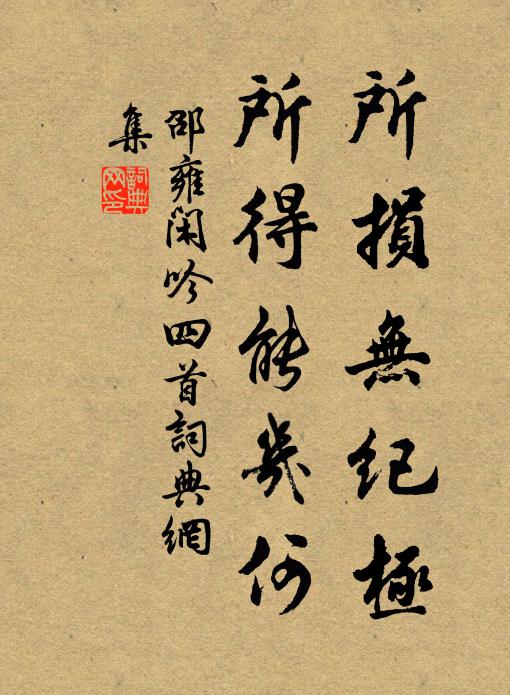 所損無紀極
所得能幾何
邵雍閑吟四首詞典網
集
詞典
网印